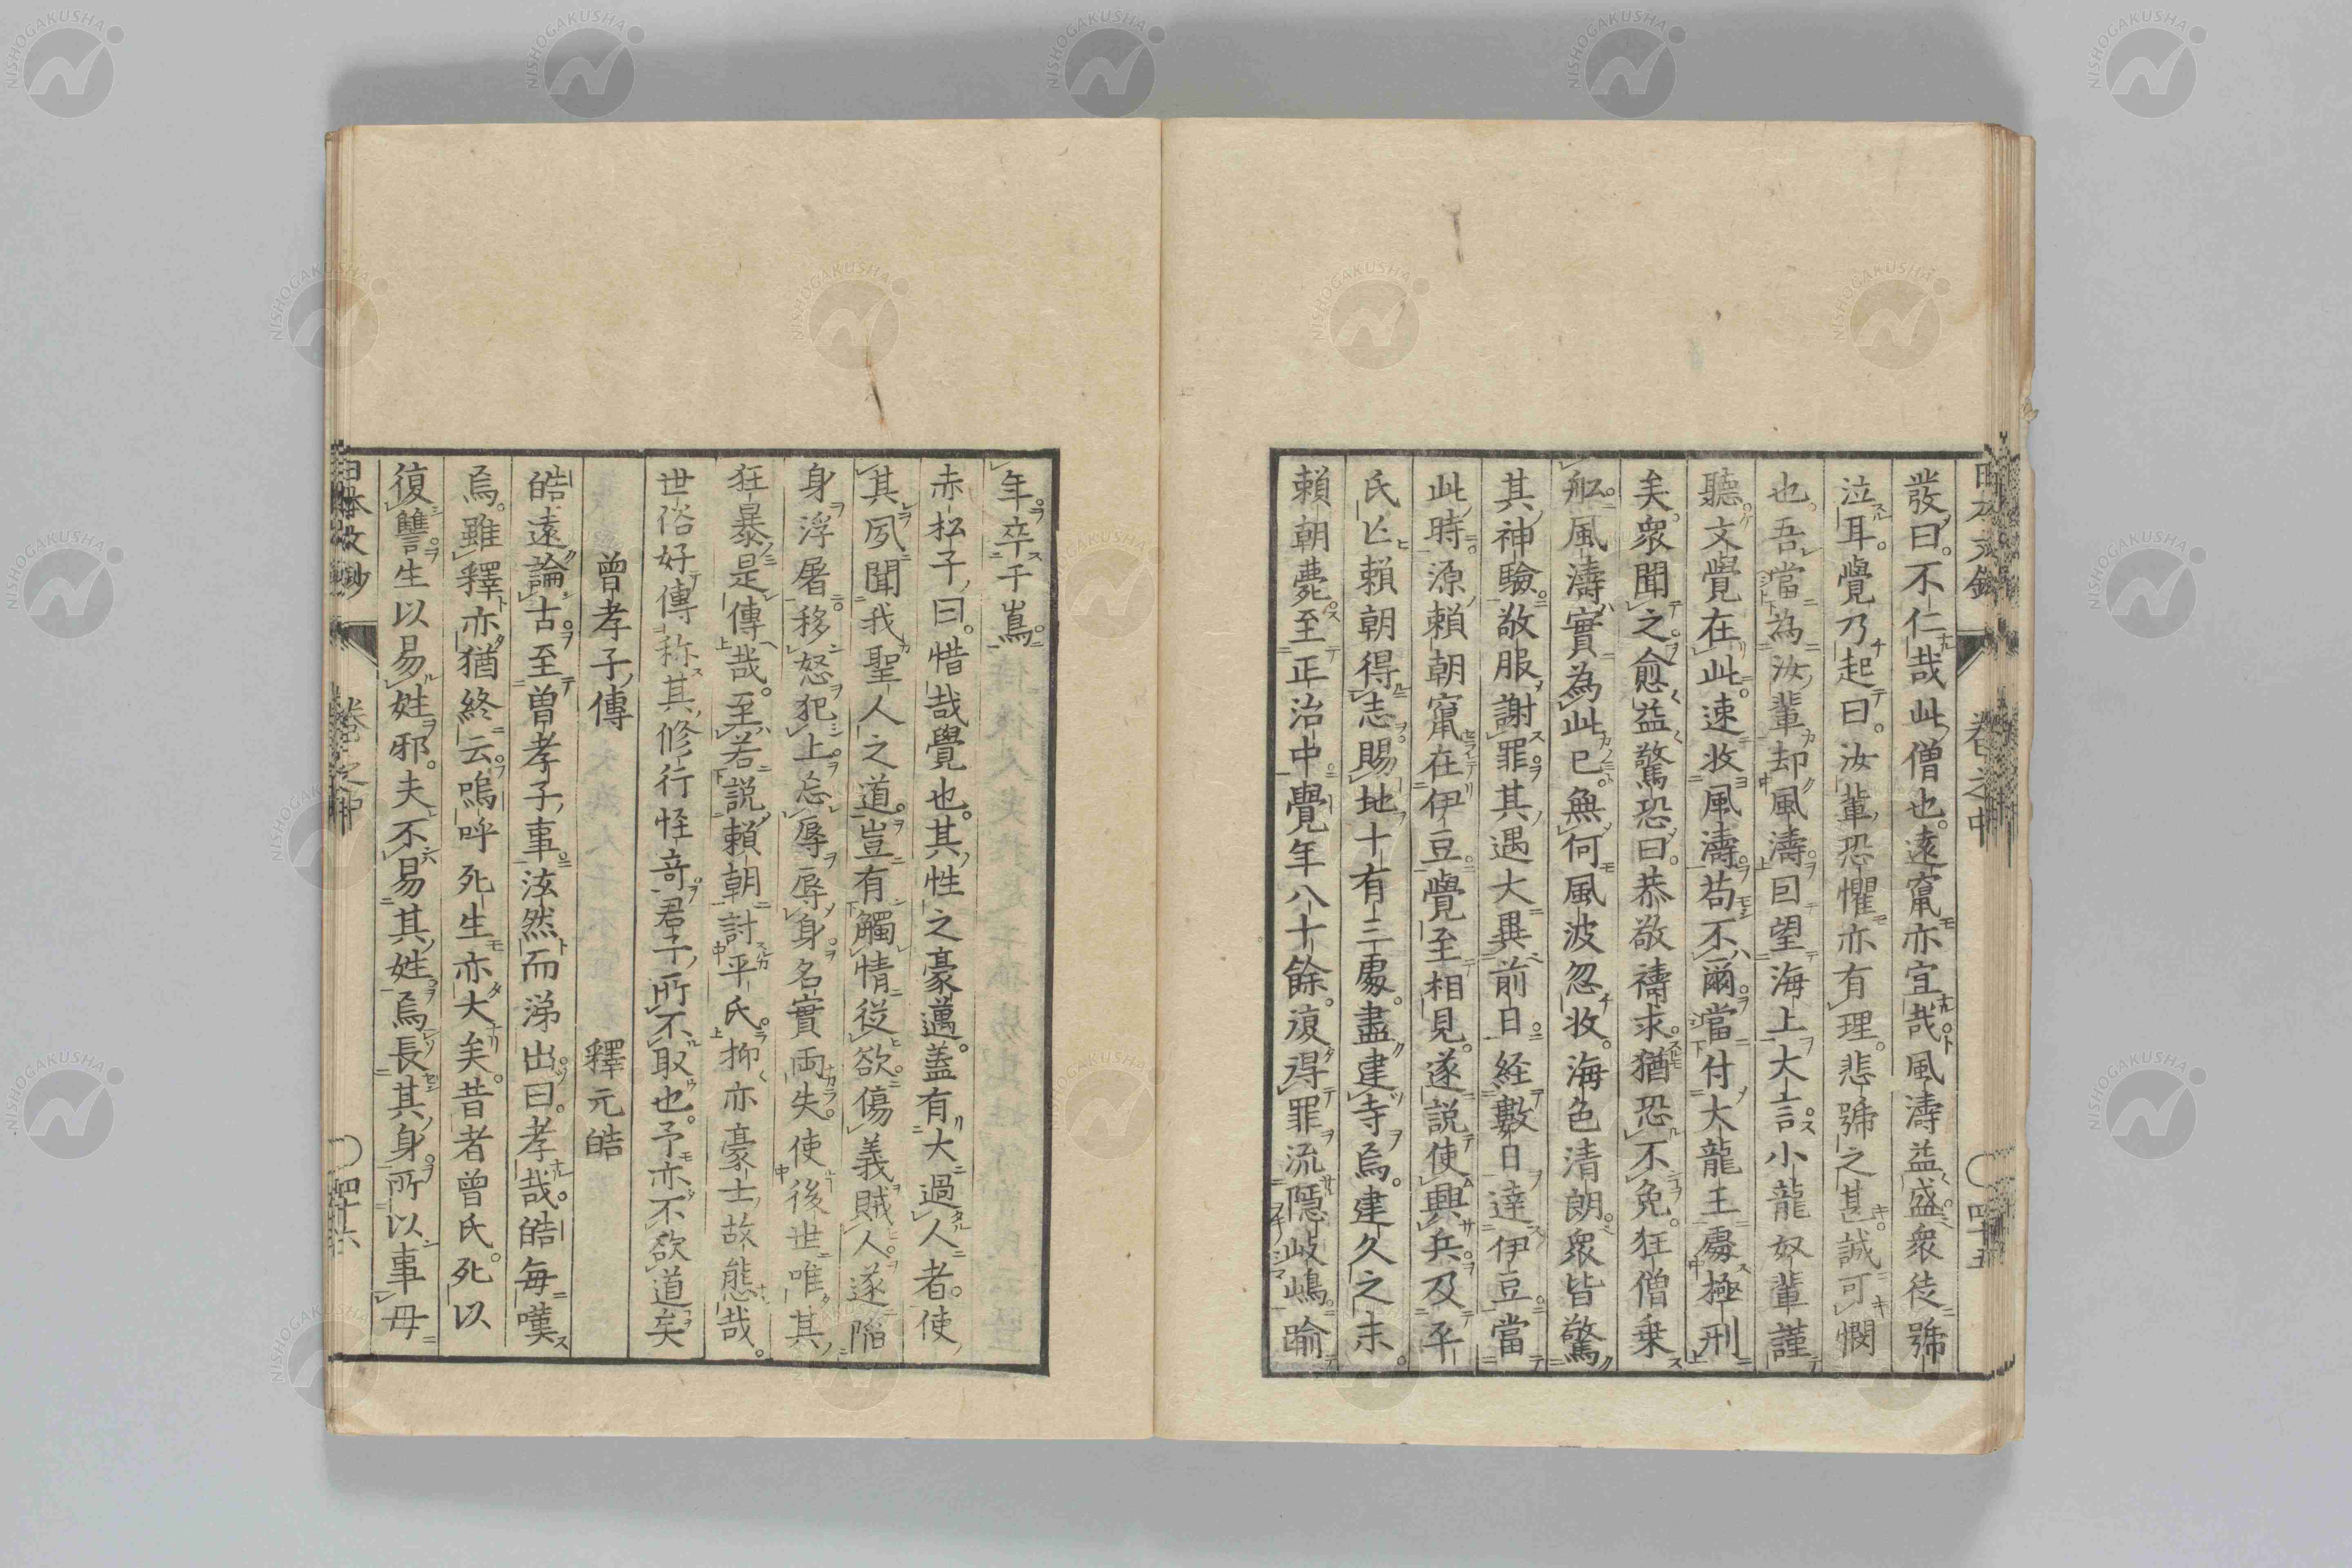 發曰。不仁哉此僧也。遠竄亦宜哉風濤益盛。衆徒號
泣耳。覺乃起曰。汝輩恐懼亦有理。悲號之甚。誠可憫
也。吾當為汝輩却風濤。回望海上大言。小龍奴輩謹
聽。文覺在此。速收風濤。苟不爾。當付大龍王處極刑
矣。衆聞之愈益驚恐曰。恭敬禱求。猶恐不免。狂僧乗
舩。風濤實為此已。無何風波忽收。海色清朗。衆皆驚
其神驗。敬服謝罪。其遇大異前日。経數日達伊豆。當
此時。源頼朝竄在伊豆。覺至相見。遂説使興兵。及平
氏亡頼朝得志。賜地十有三處。盡建寺焉。建久之末。
頼朝薨。至正治中。覺年八十餘。復得罪流隠岐嶋。踰
年。卒于嶌。
赤松子曰。惜哉覺也。其性之豪邁。蓋有大過人者。使
其夙聞我聖人之道。豈有觸情從欲。傷義賊人。遂陥
身浮屠。移怒犯上。忘辱辱身。名實両失。使後世唯其
狂暴是傳哉。至若説頼朝討平氏。抑亦豪士故態哉。
世俗好傳称其修行怪竒。君子所不取也。予亦不欲道矣
曽孝子傳
釋元皓
皓遠論古。至曽孝子事。泫然而涕出。曰。孝哉。皓毎嘆
焉。雖釋亦猶終云。嗚呼死生亦大矣。昔者曽氏。死以
復讐。生以易姓邪。夫不易其姓。焉長其身。所以事母
日本文鈔
卷之中
四十五
四十六
NISHOGAKUSHA